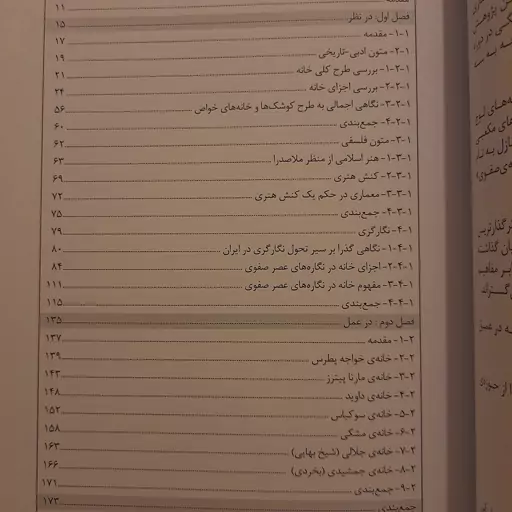 مقدمه ۱۱
فصل اول: در نظر ۱۵
۱-۱- مقدمه ۱۷
۲-۱- متون ادبی-تاریخی ۱۹
۱-۲-۱- بررسی طرح کلی خانه ۲۱
۲-۲-۱- بررسی اجزای خانه ۲۴
۳-۲-۱- نگاهی اجمالی به طرح کوشک‌ها و خانه‌های خواص ۵۶
۴-۲-۱- جمع‌بندی ۶۰
۳-۱- متون فلسفی ۶۲
۱-۳-۱- هنر اسلامی از منظر ملاصدرا ۶۳
۲-۳-۱- کنش هنری ۶۹
۳-۳-۱- معماری در حکم یک کنش هنری ۷۲
۴-۳-۱- جمع‌بندی ۷۵
۴-۱- نگارگری ۷۹
۱-۴-۱- نگاهی گذرا بر سیر تحول نگارگری در ایران ۸۰
۲-۴-۱- اجزای خانه در نگاره‌های عصر صفوی ۸۴
۳-۴-۱- مفهوم خانه در نگاره‌های عصر صفوی ۱۱۱
۴-۴-۱- جمع‌بندی ۱۱۵
فصل دوم: در عمل ۱۳۵
۱-۲- مقدمه ۱۳۷
۲-۲- خانه‌ی خواجه پطرس ۱۳۹
۳-۲- خانه‌ی مارتا پیترز ۱۴۳
۴-۲- خانه‌ی داوید ۱۴۸
۵-۲- خانه‌ی سوکیاس ۱۵۲
۶-۲- خانه‌ی مشکی ۱۵۸
۷-۲- خانه‌ی جلالی (شیخ بهایی) ۱۶۳
۸-۲- خانه‌ی جمشیدی (یخردی) ۱۶۶
۹-۲- جمع‌بندی ۱۷۱
جمع‌بندی ۱۷۳